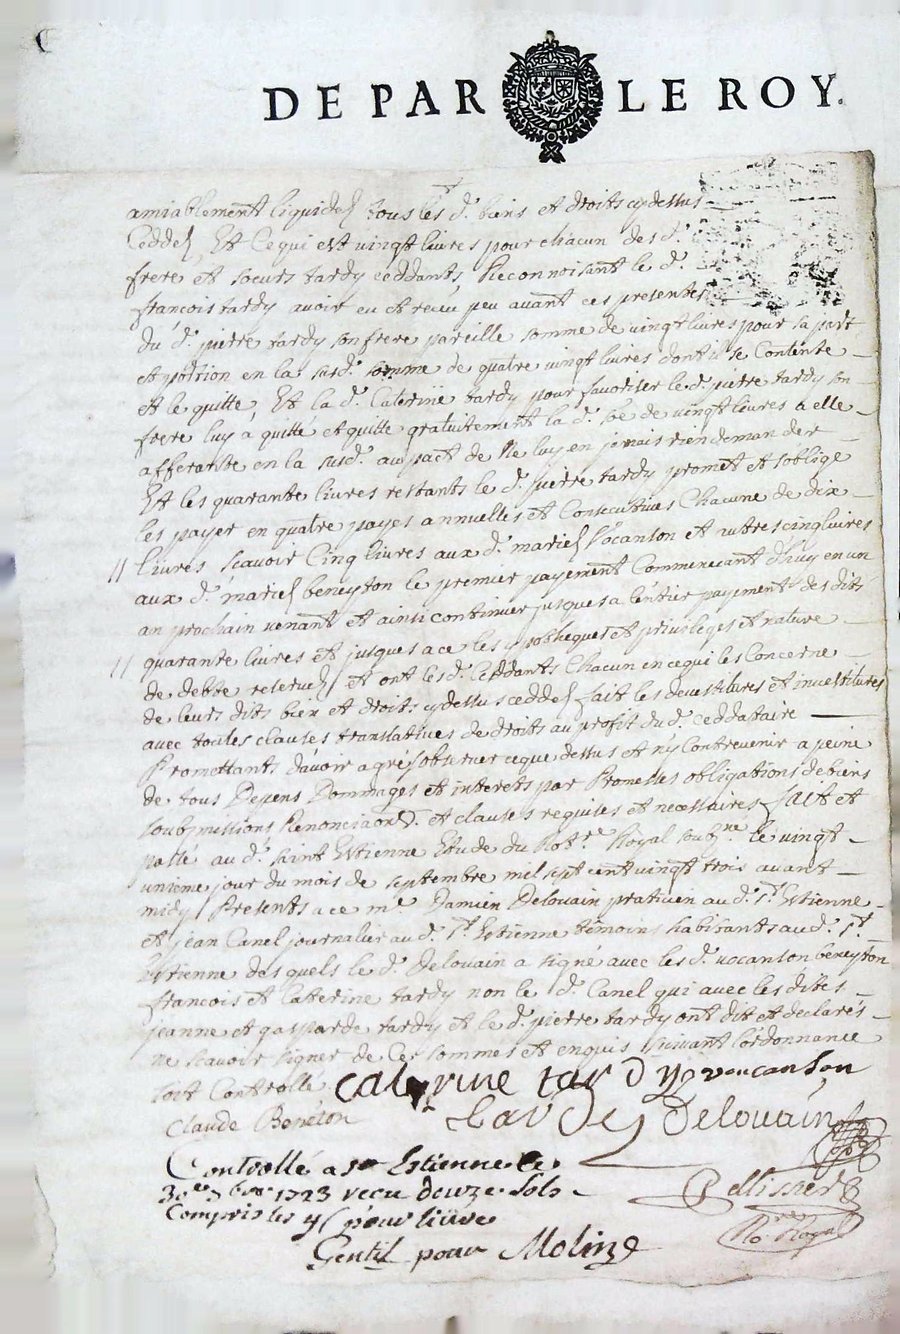 DE PAR LE ROY.
amiablement liquidés tous les d. biens et droits cydessus
Ceddés, Et Cequi est vingt livres pour chacun des d.
frere et soeurs tardy ceddants, Reconnoissant le d.
francois tardy avoir eu et recu peu avant ces presentes
du d. pierre tardy son frere pareille somme de vingt livres pour sa part
et portion en la susd. somme de quatre vingt livres dont il se Contente
et le quitte, Et la d. Caterine tardy pour favoriser le d. pierre tardy son
frere luy à quitté et quitte gratuitement la d. so.e de vingt livres a elle
afferante en la susd. au pact de Ne luy en jamais rien demander
Et les quarante livres restants le d. pierre tardy promet et s'oblige
les payer en quatre payes annuelles et Consecutives Chacune de dix
livres scavoir Cinq livres aux d. mariés Vocanson et autres cinq livres
aux d. mariés beneyton le premier payement Commencant d'huy en un
an prochain venant et ainsi continuer jusques a l'entier payement des dits
quarante livres et jusques a ce les ypotheques et privileges et nature
de debte reservés, et ont les d. Ceddants Chacun en cequi les Concerne
de leurs dits bien et droits cydessus ceddés fait les devestitures et investitures
avec toutes clauses translatives de droits au profit du d. ceddataire
Promettants d'avoir a gré, observer ceque dessus et n'y Contrevenir a peine
de tous Depens Dommages et interets par Promesses obligations de biens
soubmissions Renonciaons. et clauses requises et necessaires, fait et
passé au d. saint Estienne Etude du Not.re Royal soubz.né le vingt
unieme jour du mois de septembre mil sept cent vingt trois avant
midy / Presents a ce m.e Damien Delouain praticien au d. S.t Estienne
et jean Canel journalier au d. S.t Estienne témoins habitants aud. S.t
Estienne des quels le d. Delouain a signé avec les d. vocanson beneyton
francois et Caterine tardy non le d. Canel qui avec les dites
jeanne et gasparde tardy et le d. pierre tardy ont dit et declarés
ne scavoir signer de Ces sommes et enquis suivant l'ordonnance
soit Controllé
caterine tardy voucanson
Claude Beneton
tardy Delouain
Controllé a St Estienne le
30e 7bre 1723 recu douze sols
Compris les 4s pour livre
Pellissier
No.re Royal
Gentil pour Moline